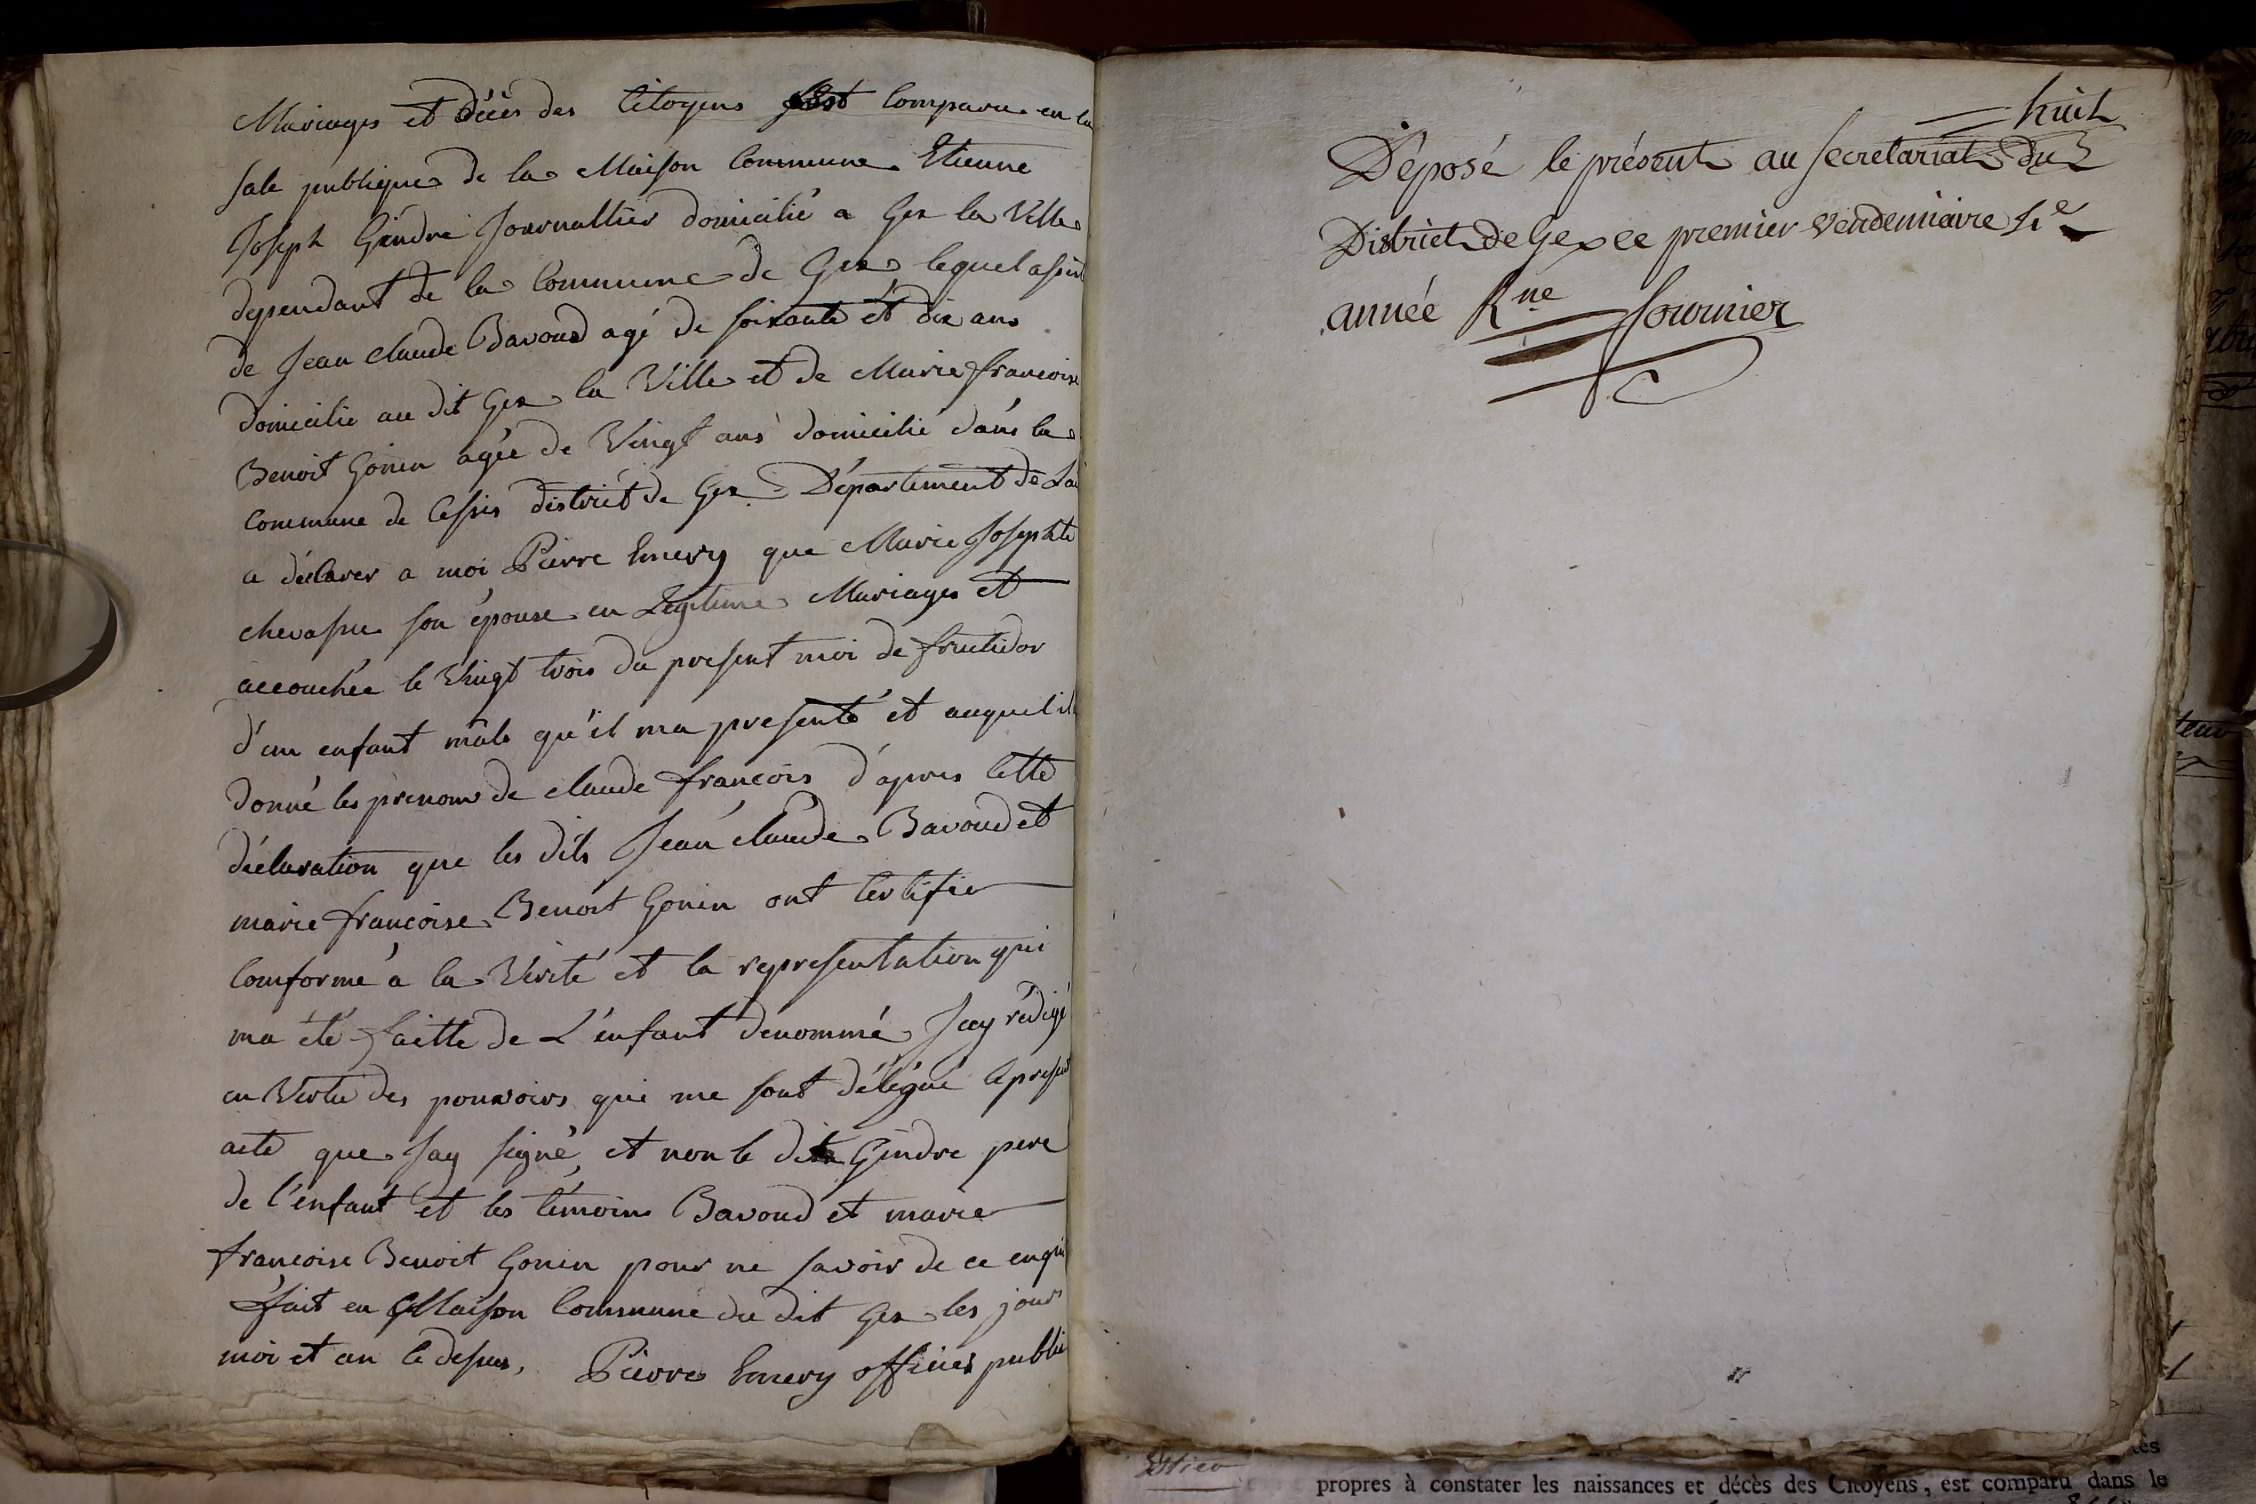 Mariages et décès des Citoyens est Comparu en la
sale publique de la Maison Commune Etienne
Joseph Gindre Journallier domicilié a Gex la Ville
dependant de la Commune de Gex lequel assisté
de Jean Claude Bavoud agé de soixante et dix ans
domicilié au dit Gex la Ville et de Marie francoise
Benoit Gonin agée de Vingt ans domicilié dans la
Commune de Cessis district de Gex Département de L'ai
a déclarer a moi Pierre Emery que Marie Josephte
chevassu son épouse en Legitime Mariages et
accouchée le Vingt trois du present moi de fructidor
d'un enfant mâle qu'il ma presenté et auquel il
donné les prenoms de claude francois d'apres Cette
déclaration que les dits Jean claude Bavoud et
marie francoise Benoit Gonin ont Certifier
Comforme a la Vérité et la representation qui
ma été faitte de L'enfant denommé Jay rédigé
en Vertu des pouvoirs qui me sont délégué le present
acte que Jay signé et non le dit Gindre pere
de l'enfant et les témoins Bavoud et marie
francoise Benoit Gonin pour ne savoir de ce enquis
fait en Maison Commune du dit Gex les jours
moi et an Cy dessus, Pierre Emery officier public
huit
Déposé le présent au secretariat du
District de Gex ce premier Vendemiaire
année Rne fournier
propres à constater les naissances et décès des Citoyens, est comparu dans le